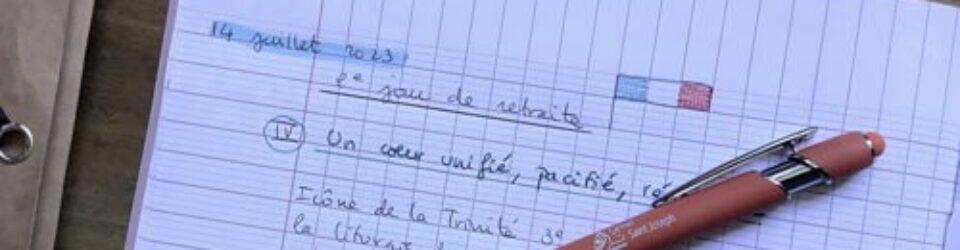 14 juillet 2023
2e jour de retraite
IV Un cœur unifié, pacifié, ré
Icône de la Trinité 3e
la
Saint Joseph